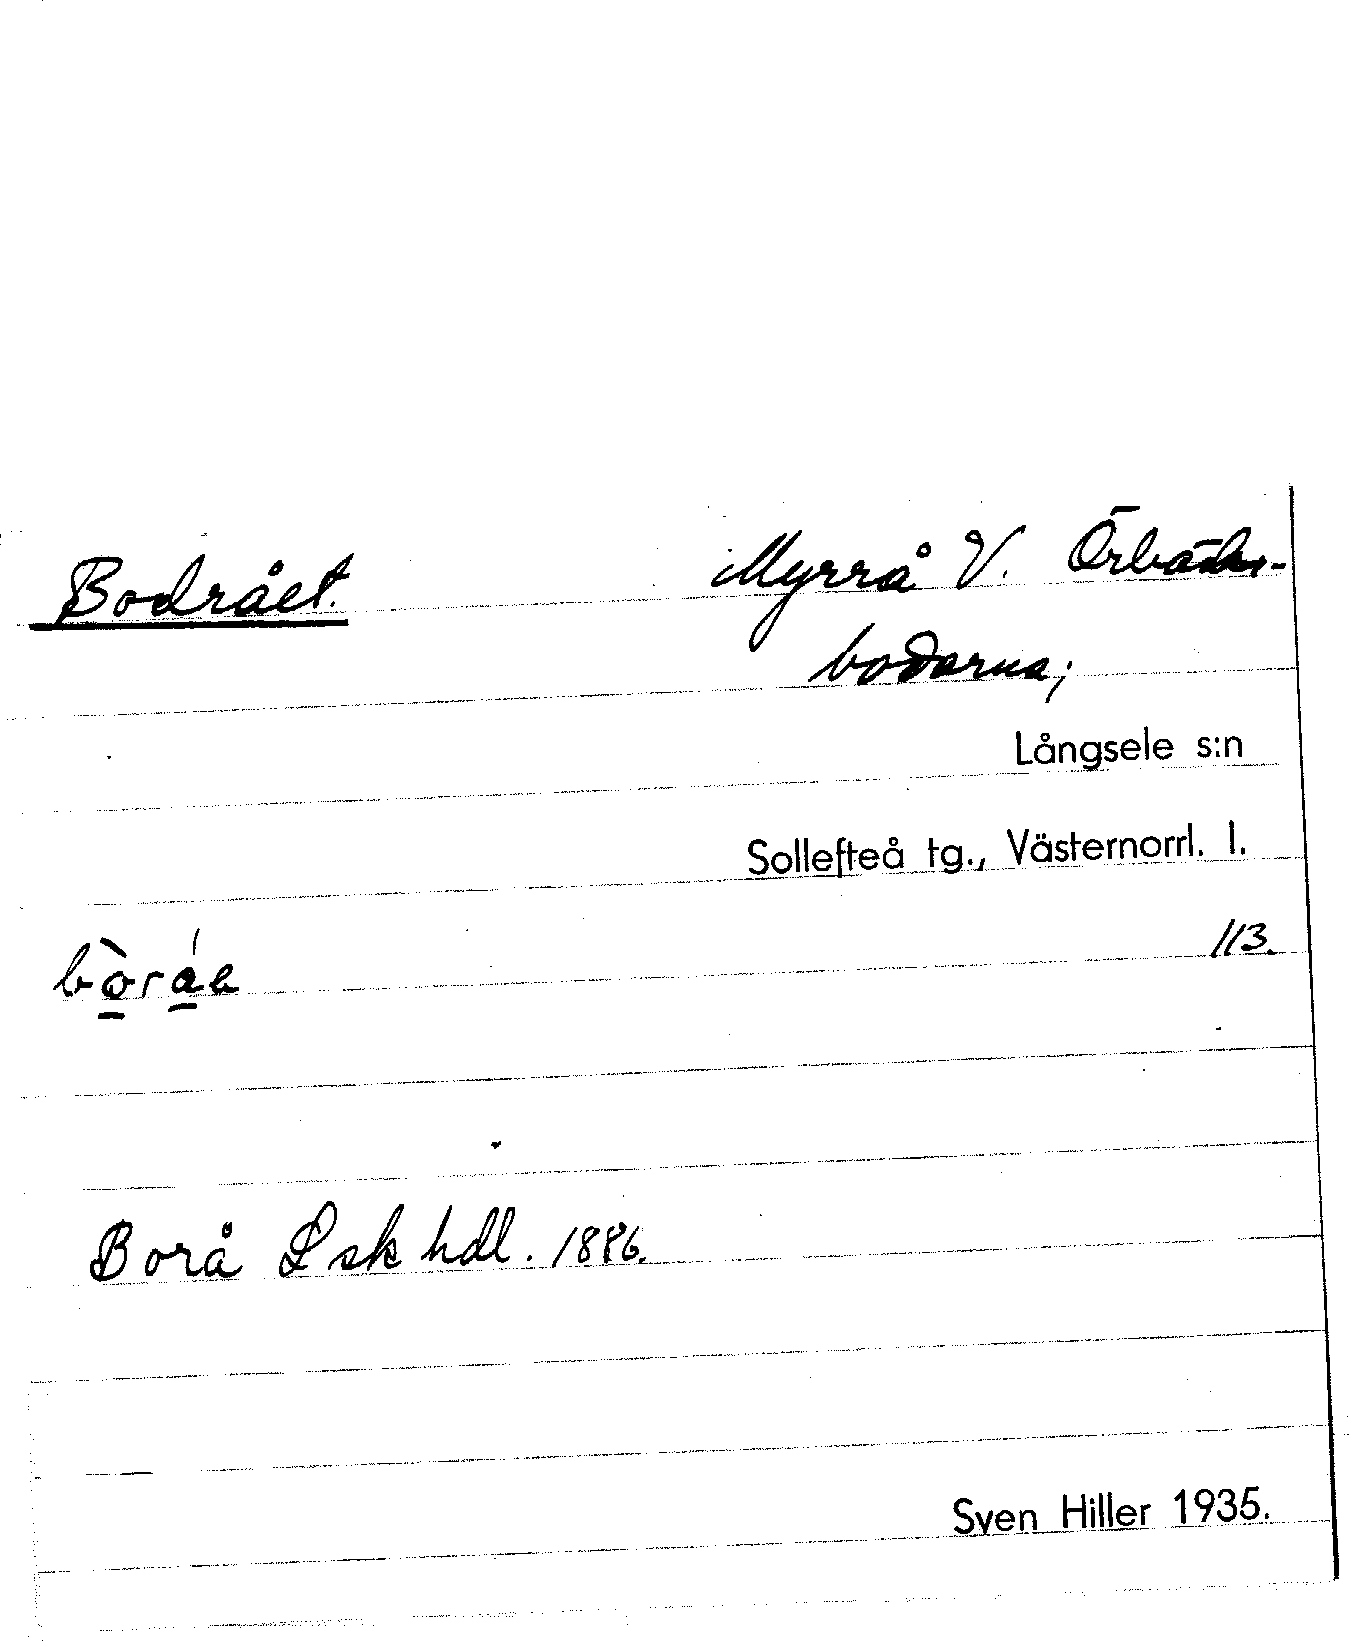 Bodrået.
Myrrå V. Örbäcks-
bodarna;
Långsele s:n
Sollefteå tg., Västernorrl. l.
113.
Borå Lsk hdl. 1886.
Sven Hiller 1935.